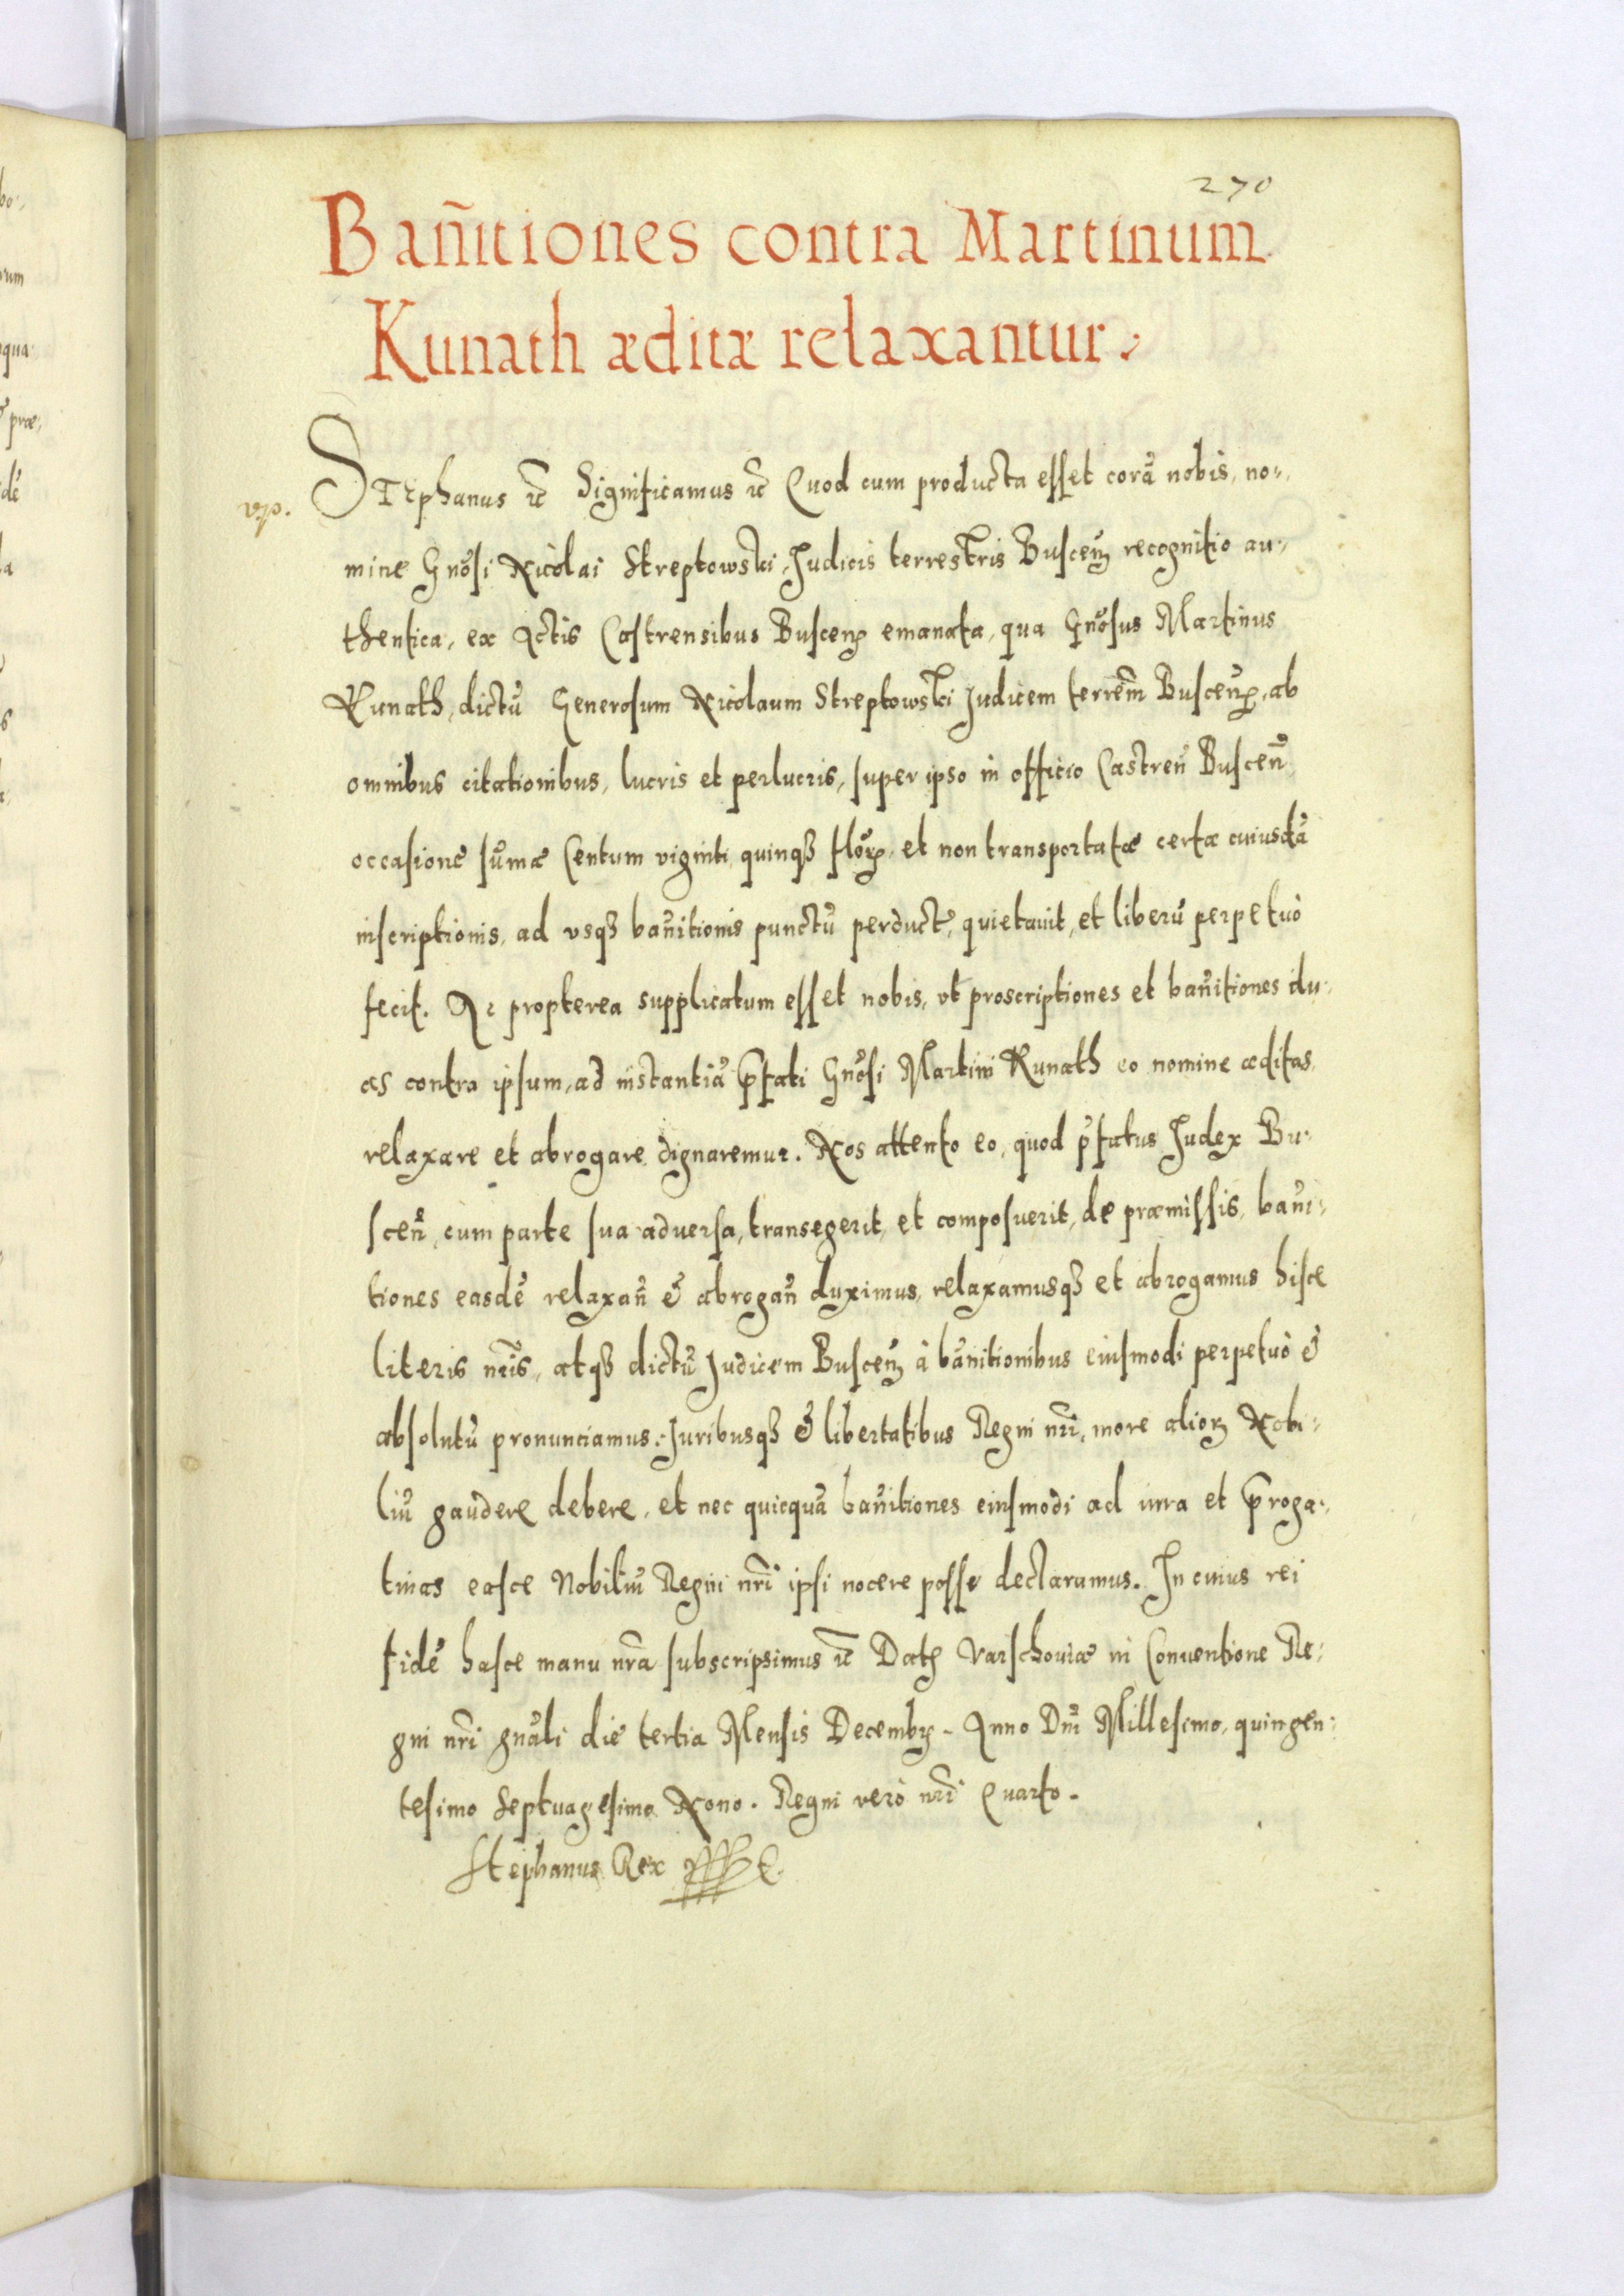 270
Bañitiones contra Martinum
Kunath æditæ relaxantur.
STEphanus etc̃ Significamus etc̃ Quod cum producta esset corã nobis, no-
mine Gnõsi Nicolai Streptowski, Judicis terrestris Buscen̄ recognitio au-
thentica, ex Actis Castrensibus Buscen̄ emanata, qua Gnõsus Martinus
Kunath, dictũ Generosum Nicolaum Streptowski Judicem terrẽm Buscen̄, ab
omnibus citationibus, lucris et perlucris, super ipso in officio Castren̄ Buscen̄
occasione sũmæ Centum viginti quinqꝫ flõr, et non transportatæ certæ cuiusdã
inscriptionis, ad vsqꝫ bañitionis punctũ perduct, quietauit, et liberũ perpetuò
fecit. Ac propterea supplicatum esset nobis, vt proscriptiones et bañitiones du-
as contra ipsum, ad instantiã p̃fati Gnõsi Martini Kunath eo nomine æditas
relaxare et abrogare dignaremur. Nos attento eo, quod p̃fatus Judex Bu-
scen̄, cum parte sua aduersa, transegerit, et composuerit, de præmissis, bañi-
tiones easdẽ relaxan̄ & abrogan̄ duximus, relaxamusqꝫ et abrogamus hisce
literis nr̃is, atqꝫ dictũ Judicem Buscen̄ à bãnitionibus eiusmodi perpetuò &
absolutũ pronunciamus. Juribusqꝫ & libertatibus Regni nr̃i, more alioꝝ Nobi-
liũ gaudere debere, et nec quicquã bañitiones eiusmodi ad iura et p̃roga-
tiuas easce Nobiliũ Regni nr̃i ipsi nocere posse declaramus. In cuius rei
fidẽ hasce manu nr̃a subscripsimus etc̃ Datꝭ Varschouiæ in Conuentione Re-
gni nr̃i gnãli die tertia Mensis Decembꝝ. Anno Dnĩ Millesimo, quingen-
tesimo Septuagesimo Nono. Regni verò nr̃i Quarto.
Stephanus Rex